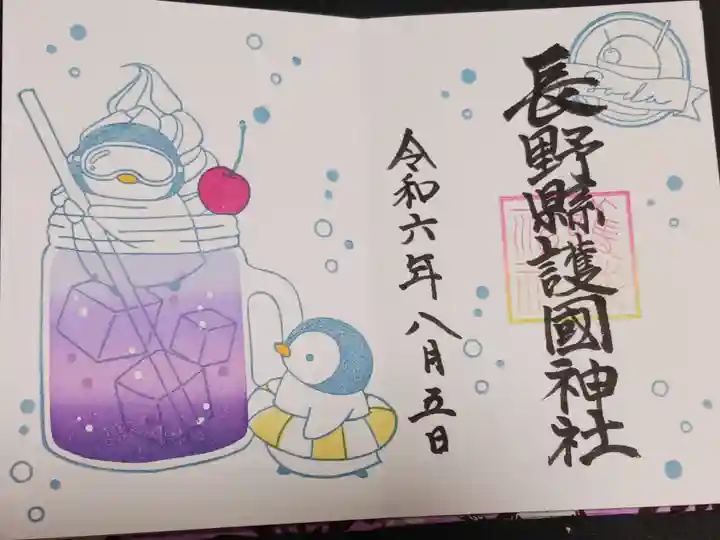 Soda
長野縣護國神社
令和六年八月五日